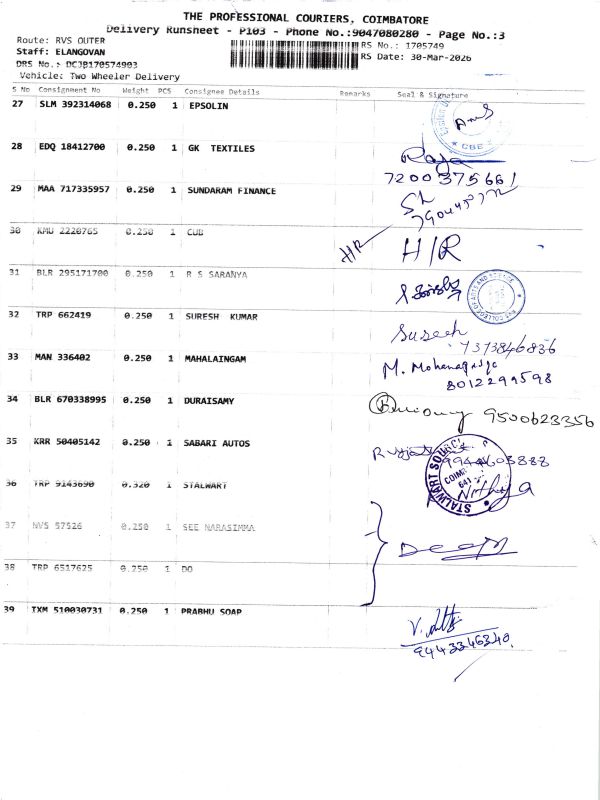 THE PROFESSIONAL COURIERS, COIMBATORE
Delivery Runsheet - P103 - Phone No.:9047080280 - Page No.:3
Route: RVS OUTER
RS No.: 1705749
Staff: ELANGOVAN
RS Date: 30-Mar-2026
DRS No.: DCJB170574903
Vehicle: Two Wheeler Delivery
S No Consignment No Weight PCS Consignee Details Remarks Seal & Signature
27 SLM 392314068 0.250 1 EPSOLIN
CBE
28 EDQ 18412700 0.250 1 GK TEXTILES Raja
7200375661
29 MAA 717335957 0.250 1 SUNDARAM FINANCE
30 KMU 2220765 0.250 1 CUB H/R H/R
31 BLR 295171700 0.250 1 R S SARANYA
32 TRP 662419 0.250 1 SURESH KUMAR Suresh
7373846836
33 MAN 336402 0.250 1 MAHALAINGAM M. Mohanagasje
8012299598
34 BLR 670338995 0.250 1 DURAISAMY 9500623356
35 KRR 50405142 0.250 1 SABARI AUTOS
9944603888
36 TRP 9143690 0.320 1 STALWART Nithya
STALWART
37 NVS 57526 0.250 1 SEE NARASIMMA
38 TRP 6517625 0.250 1 DO
39 TXM 510030731 0.250 1 PRABHU SOAP
9443346340